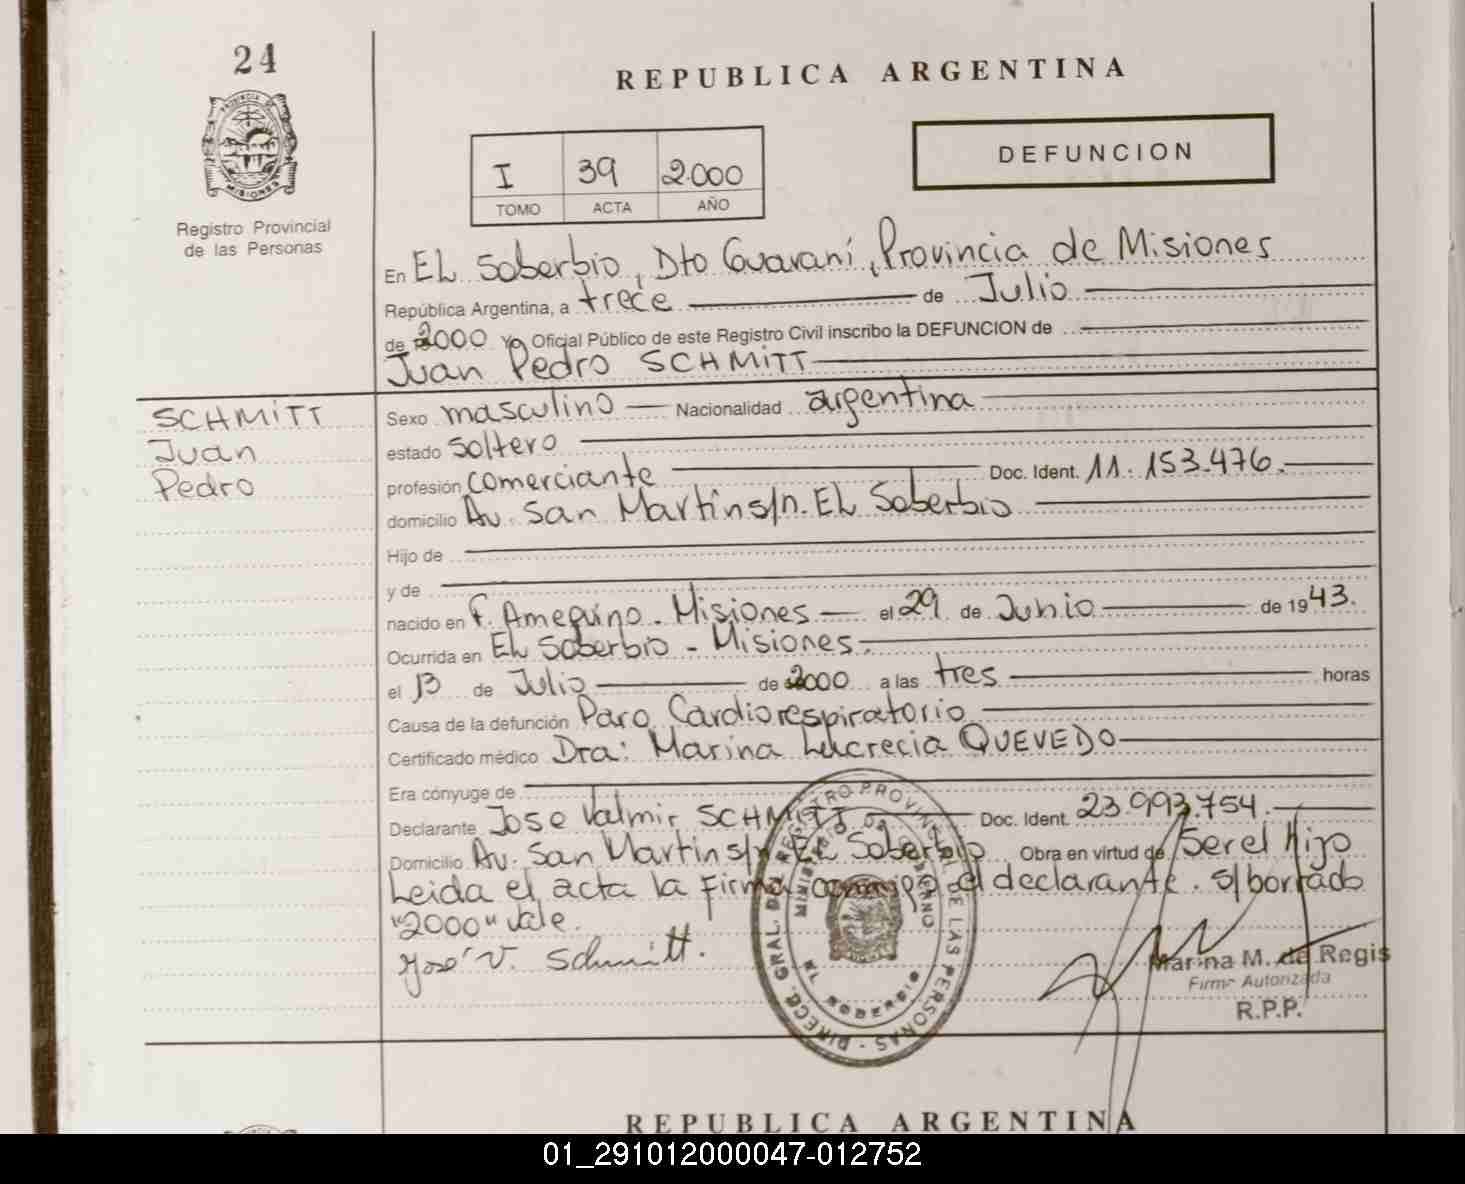 24
REPUBLICA ARGENTINA
PROVINCIA DE
MISIONES
Registro Provincial
de las Personas
I 39 2.000
TOMO ACTA AÑO
DEFUNCION
En EL Soberbio, Dto Guaraní, Provincia de Misiones
República Argentina, a trece de Julio
de 2000 Yo Oficial Público de este Registro Civil inscribo la DEFUNCION de
Juan Pedro SCHMITT
SCHMITT
Juan
Pedro
Sexo masculino Nacionalidad argentina
estado soltero
profesión comerciante Doc. Ident. 11.153.476.
domicilio Av. San Martín s/n. EL Soberbio
Hijo de
y de
nacido en F. Ameguino. Misiones el 29 de Junio de 1943.
Ocurrida en EL Soberbio - Misiones.
el 13 de Julio de 2000 a las tres horas
Causa de la defunción Paro Cardiorespiratorio
Certificado médico Dra: Marina Lucrecia QUEVEDO
Era cónyuge de
Declarante Jose Valmir SCHMITT Doc. Ident. 23.993.754.
Domicilio Av. San Martin s/n EL Soberbio Obra en virtud de Ser el Hijo
Leida el acta la firma conmigo el declarante. s/borrado
"2000" vale.
José V. Schmitt.
DIRECC. GRAL. DEL REGISTRO PROVINCIAL DE LAS PERSONAS
MINISTERIO DE GOBIERNO
EL SOBERBIO
Marina M. de Regis
Firma Autorizada
R.P.P.
REPUBLICA ARGENTINA
01_291012000047-012752